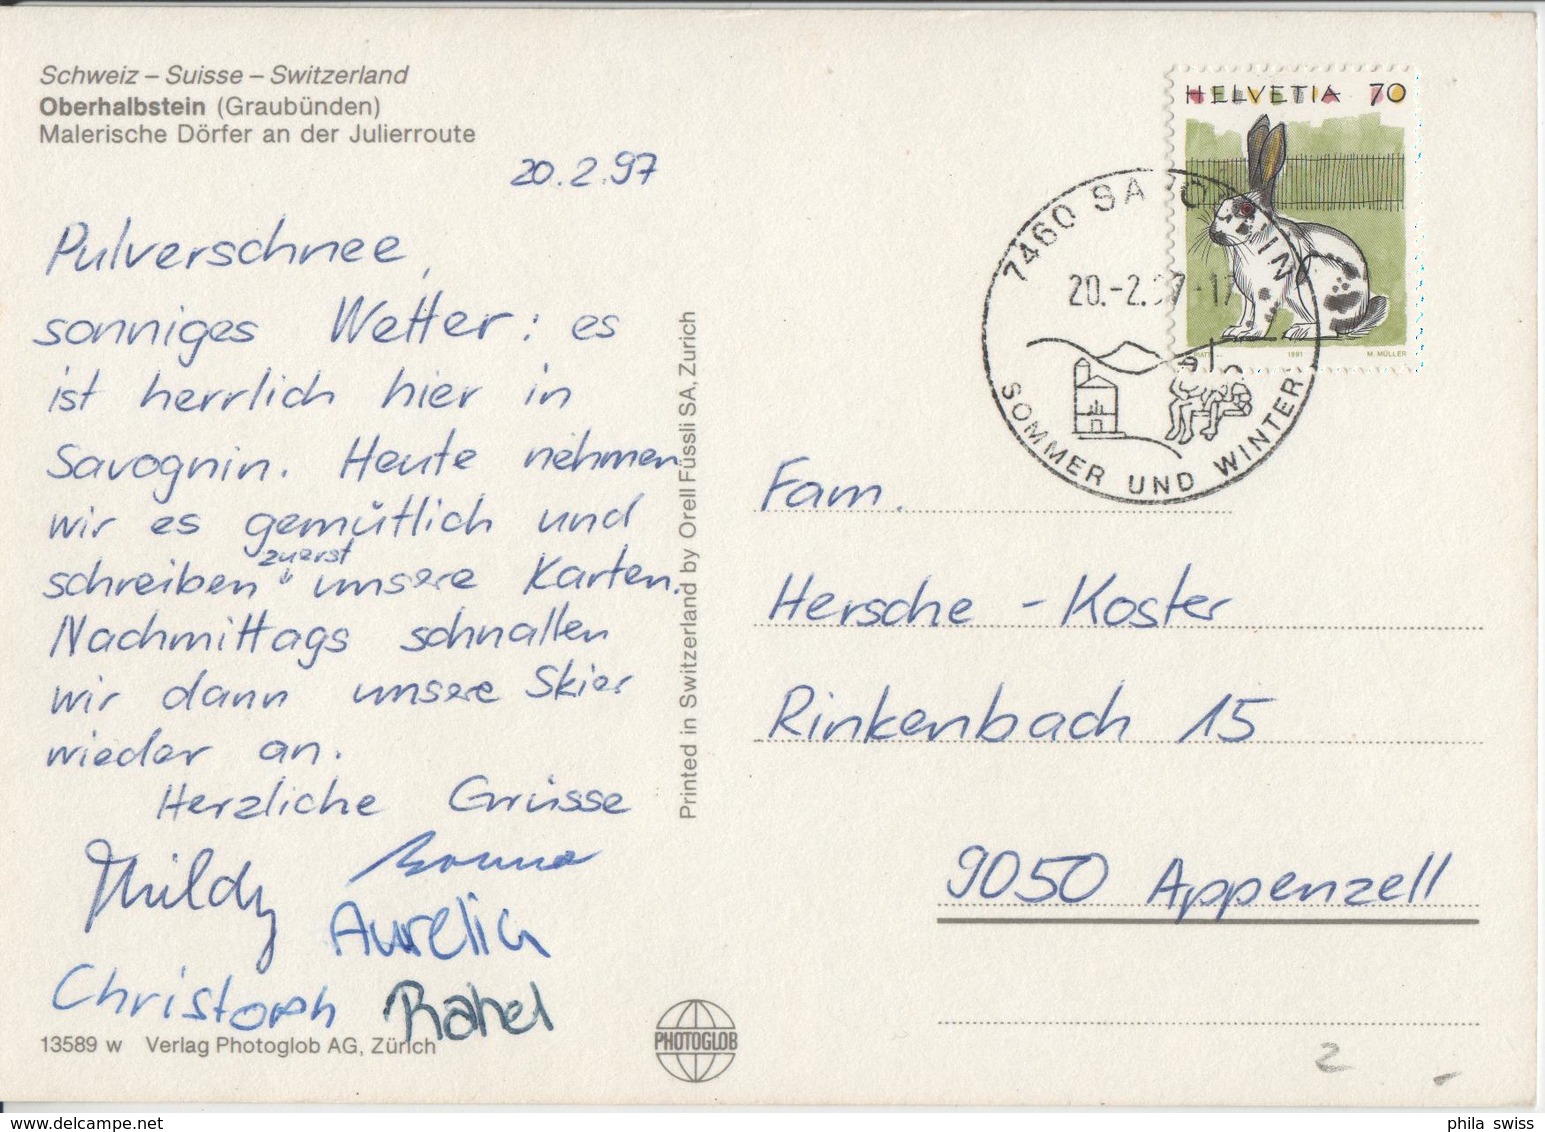 Schweiz – Suisse – Switzerland
Oberhalbstein (Graubünden)
Malerische Dörfer an der Julierroute
20.2.97
Pulverschnee,
sonniges Wetter: es
ist herrlich hier in
Savognin. Heute nehmen
wir es gemütlich und
zuerst
schreiben unsere Karten.
Nachmittags schnallen
wir dann unsere Skier
wieder an.
Herzliche Grüsse
Hildy
Aurelia
Christoph Rahel
13589 w Verlag Photoglob AG, Zürich
Printed in Switzerland by Orell Füssli SA, Zurich
PHOTOGLOB
HELVETIA 70
1991 M. MÜLLER
7460 SAVOGNIN
20.-2.97-17
SOMMER UND WINTER
Fam.
Hersche - Koster
Rinkenbach 15
9050 Appenzell
2
phila swiss
www.delcampe.net